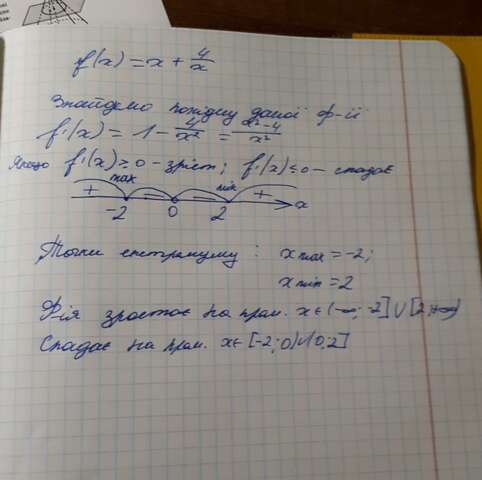 f(x) = x + 4/x
Знайдемо похідну даної ф-ії
f'(x) = 1 - 4/x² = x²-4/x²
Якщо f'(x) ≥ 0 - зріст; f'(x) ≤ 0 - спадає
+ max - - min +
-2 0 2 x
Точки екстремуму: x max = -2;
x min = 2
Ф-ія зростає на пром. x∈(-∞; -2]∪[2;+∞)
Спадає на пром. x∈[-2;0)∪(0;2]